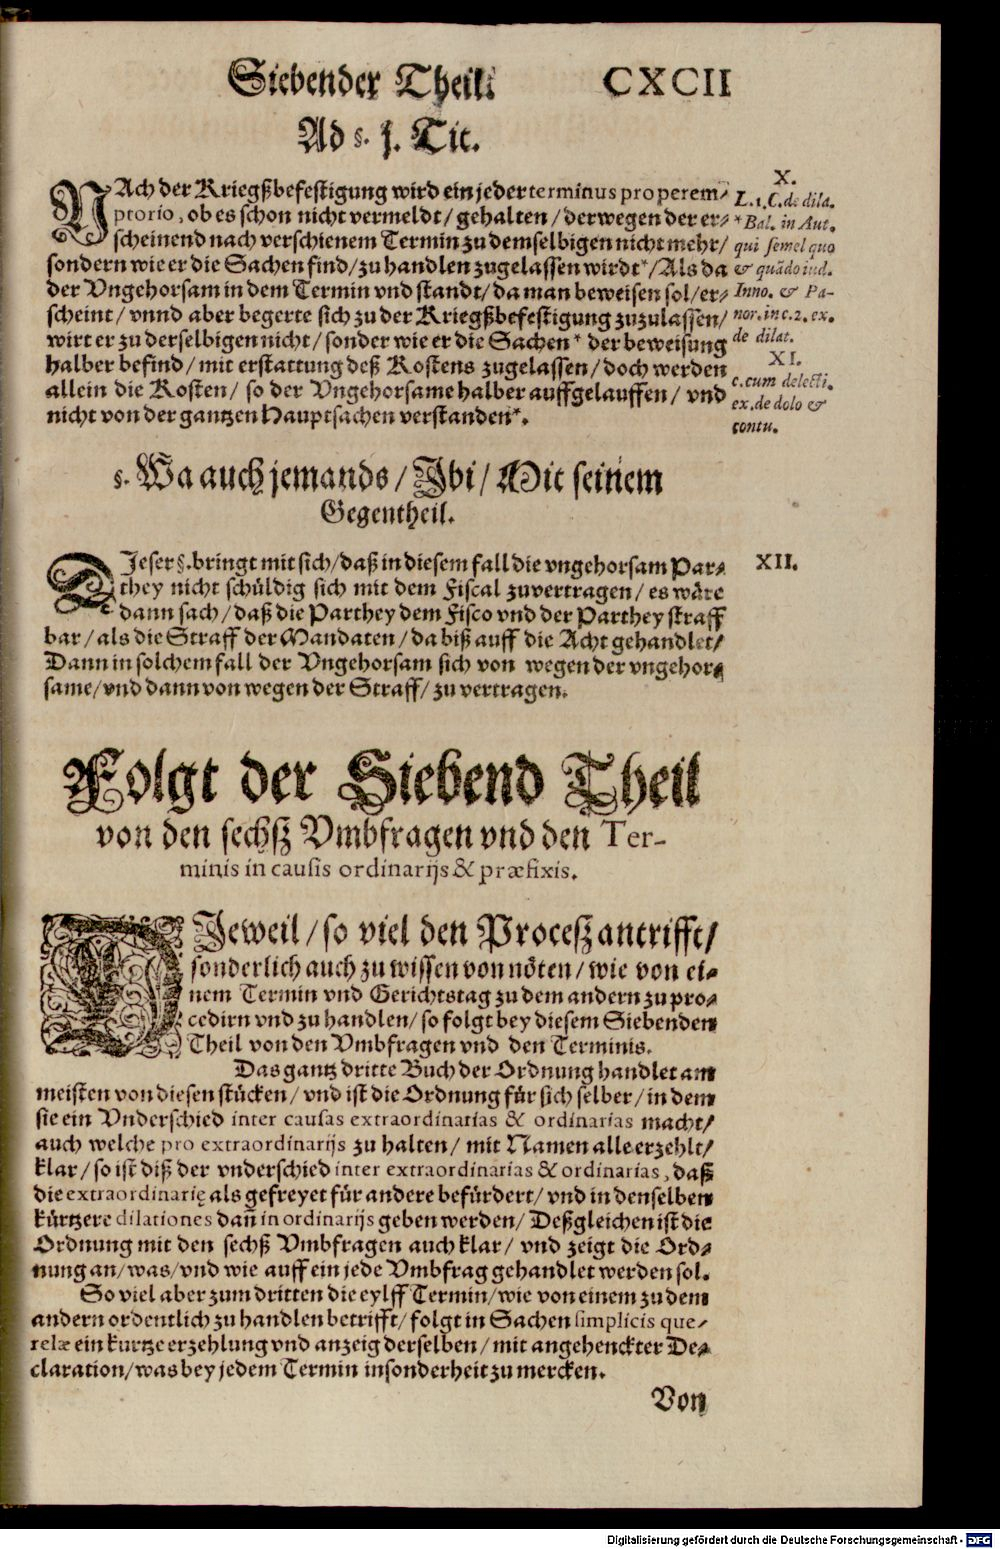 Siebender Theil. CXCII
Ad §. j. Tit.
NAch der Kriegßbefestigung wird ein jeder terminus pro perem-
ptorio, ob es schon nicht vermeldt/ gehalten/ derwegen der er-
scheinend nach verschienem Termin zu demselbigen nicht mehr/
sondern wie er die Sachen find/ zu handlen zugelassen wirdt*/ Als da
der Vngehorsam in dem Termin vnd standt/ da man beweisen sol/ er-
scheint/ vnnd aber begerte sich zu der Kriegßbefestigung zuzulassen/
wirt er zu derselbigen nicht/ sonder wie er die Sachen* der beweisung
halber befind/ mit erstattung deß Kostens zugelassen/ doch werden
allein die Kosten/ so der Vngehorsame halber auffgelauffen/ vnd
nicht von der gantzen Hauptsachen verstanden*.
X.
L.1.C.de dila.
*Bal. in Aut.
qui semel quo
& quãdo iud.
Inno. & Pa-
nor.in c.2. ex.
de dilat.
XI.
c.cum delecti.
ex.de dolo &
contu.
§. Wa auch jemands/ Ibi/ Mit seinem
Gegentheil.
DIeser §. bringt mit sich/ daß in diesem fall die vngehorsam Par-
they nicht schüldig sich mit dem Fiscal zuvertragen/ es wäre
dann sach/ daß die Parthey dem Fisco vnd der Parthey straff
bar/ als die Straff der Mandaten/ da biß auff die Acht gehandlet/
Dann in solchem fall der Vngehorsam sich von wegen der vngehor-
same/ vnd dann von wegen der Straff/ zu vertragen.
XII.
Folgt der Siebend Theil
von den sechsz Vmbfragen vnd den Ter-
minis in causis ordinarijs & præfixis.
DIeweil/ so viel den Procesz antrifft/
sonderlich auch zu wissen von nöten/ wie von ei-
nem Termin vnd Gerichtstag zu dem andern zu pro-
cedirn vnd zu handlen/ so folgt bey diesem Siebenden
Theil von den Vmbfragen vnd den Terminis.
Das gantz dritte Buch der Ordnung handlet am
meisten von diesen stücken/ vnd ist die Ordnung für sich selber/ in dem
sie ein Vnderschied inter causas extraordinarias & ordinarias macht/
auch welche pro extraordinarijs zu halten/ mit Namen alle erzehlt/
klar/ so ist diß der vnderschied inter extraordinarias & ordinarias, daß
die extraordinarię als gefreyet für andere befürdert/ vnd in denselben
kürtzere dilationes dañ in ordinarijs geben werden/ Deßgleichen ist die
Ordnung mit den sechß Vmbfragen auch klar/ vnd zeigt die Ord-
nung an/ was/ vnd wie auff ein jede Vmbfrag gehandlet werden sol.
So viel aber zum dritten die eylff Termin/ wie von einem zu dem
andern ordentlich zu handlen betrifft/ folgt in Sachen simplicis que-
relæ ein kurtze erzehlung vnd anzeig derselben/ mit angehenckter De-
claration/ was bey jedem Termin insonderheit zu mercken.
Von
Digitalisierung gefördert durch die Deutsche Forschungsgemeinschaft - DFG